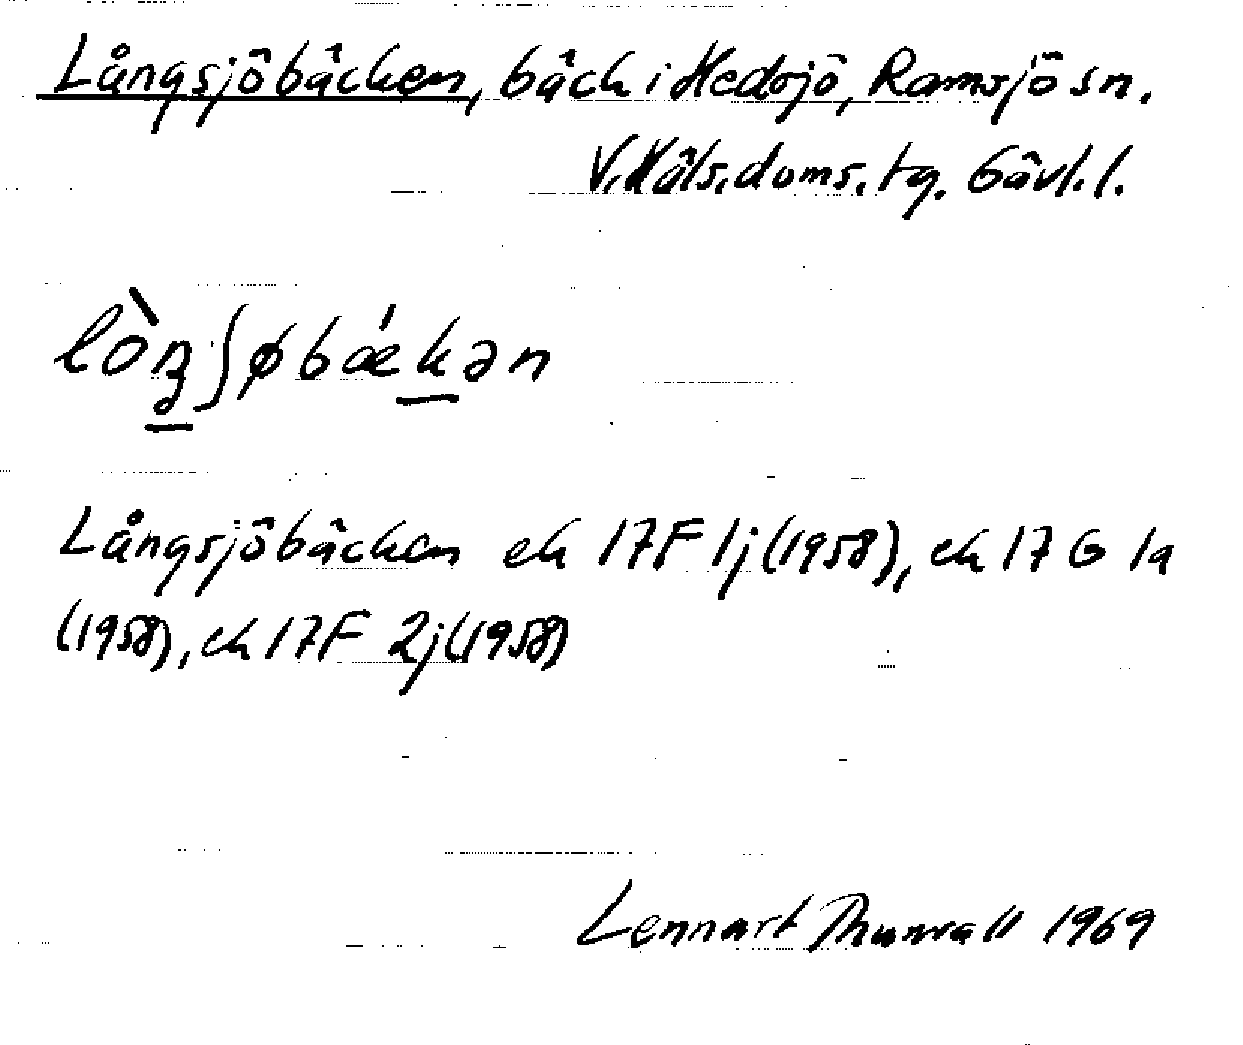 Långsjöbäcken, bäck i Hedsjö, Ramsjö sn.
V. Häls. doms. tg. Gävl. l.
lòŋʃøbǽkən
Långsjöbäcken ek 17F 1j (1958), ek 17 G 1a
(1958), ek 17F 2j (1958)
Lennart 1969